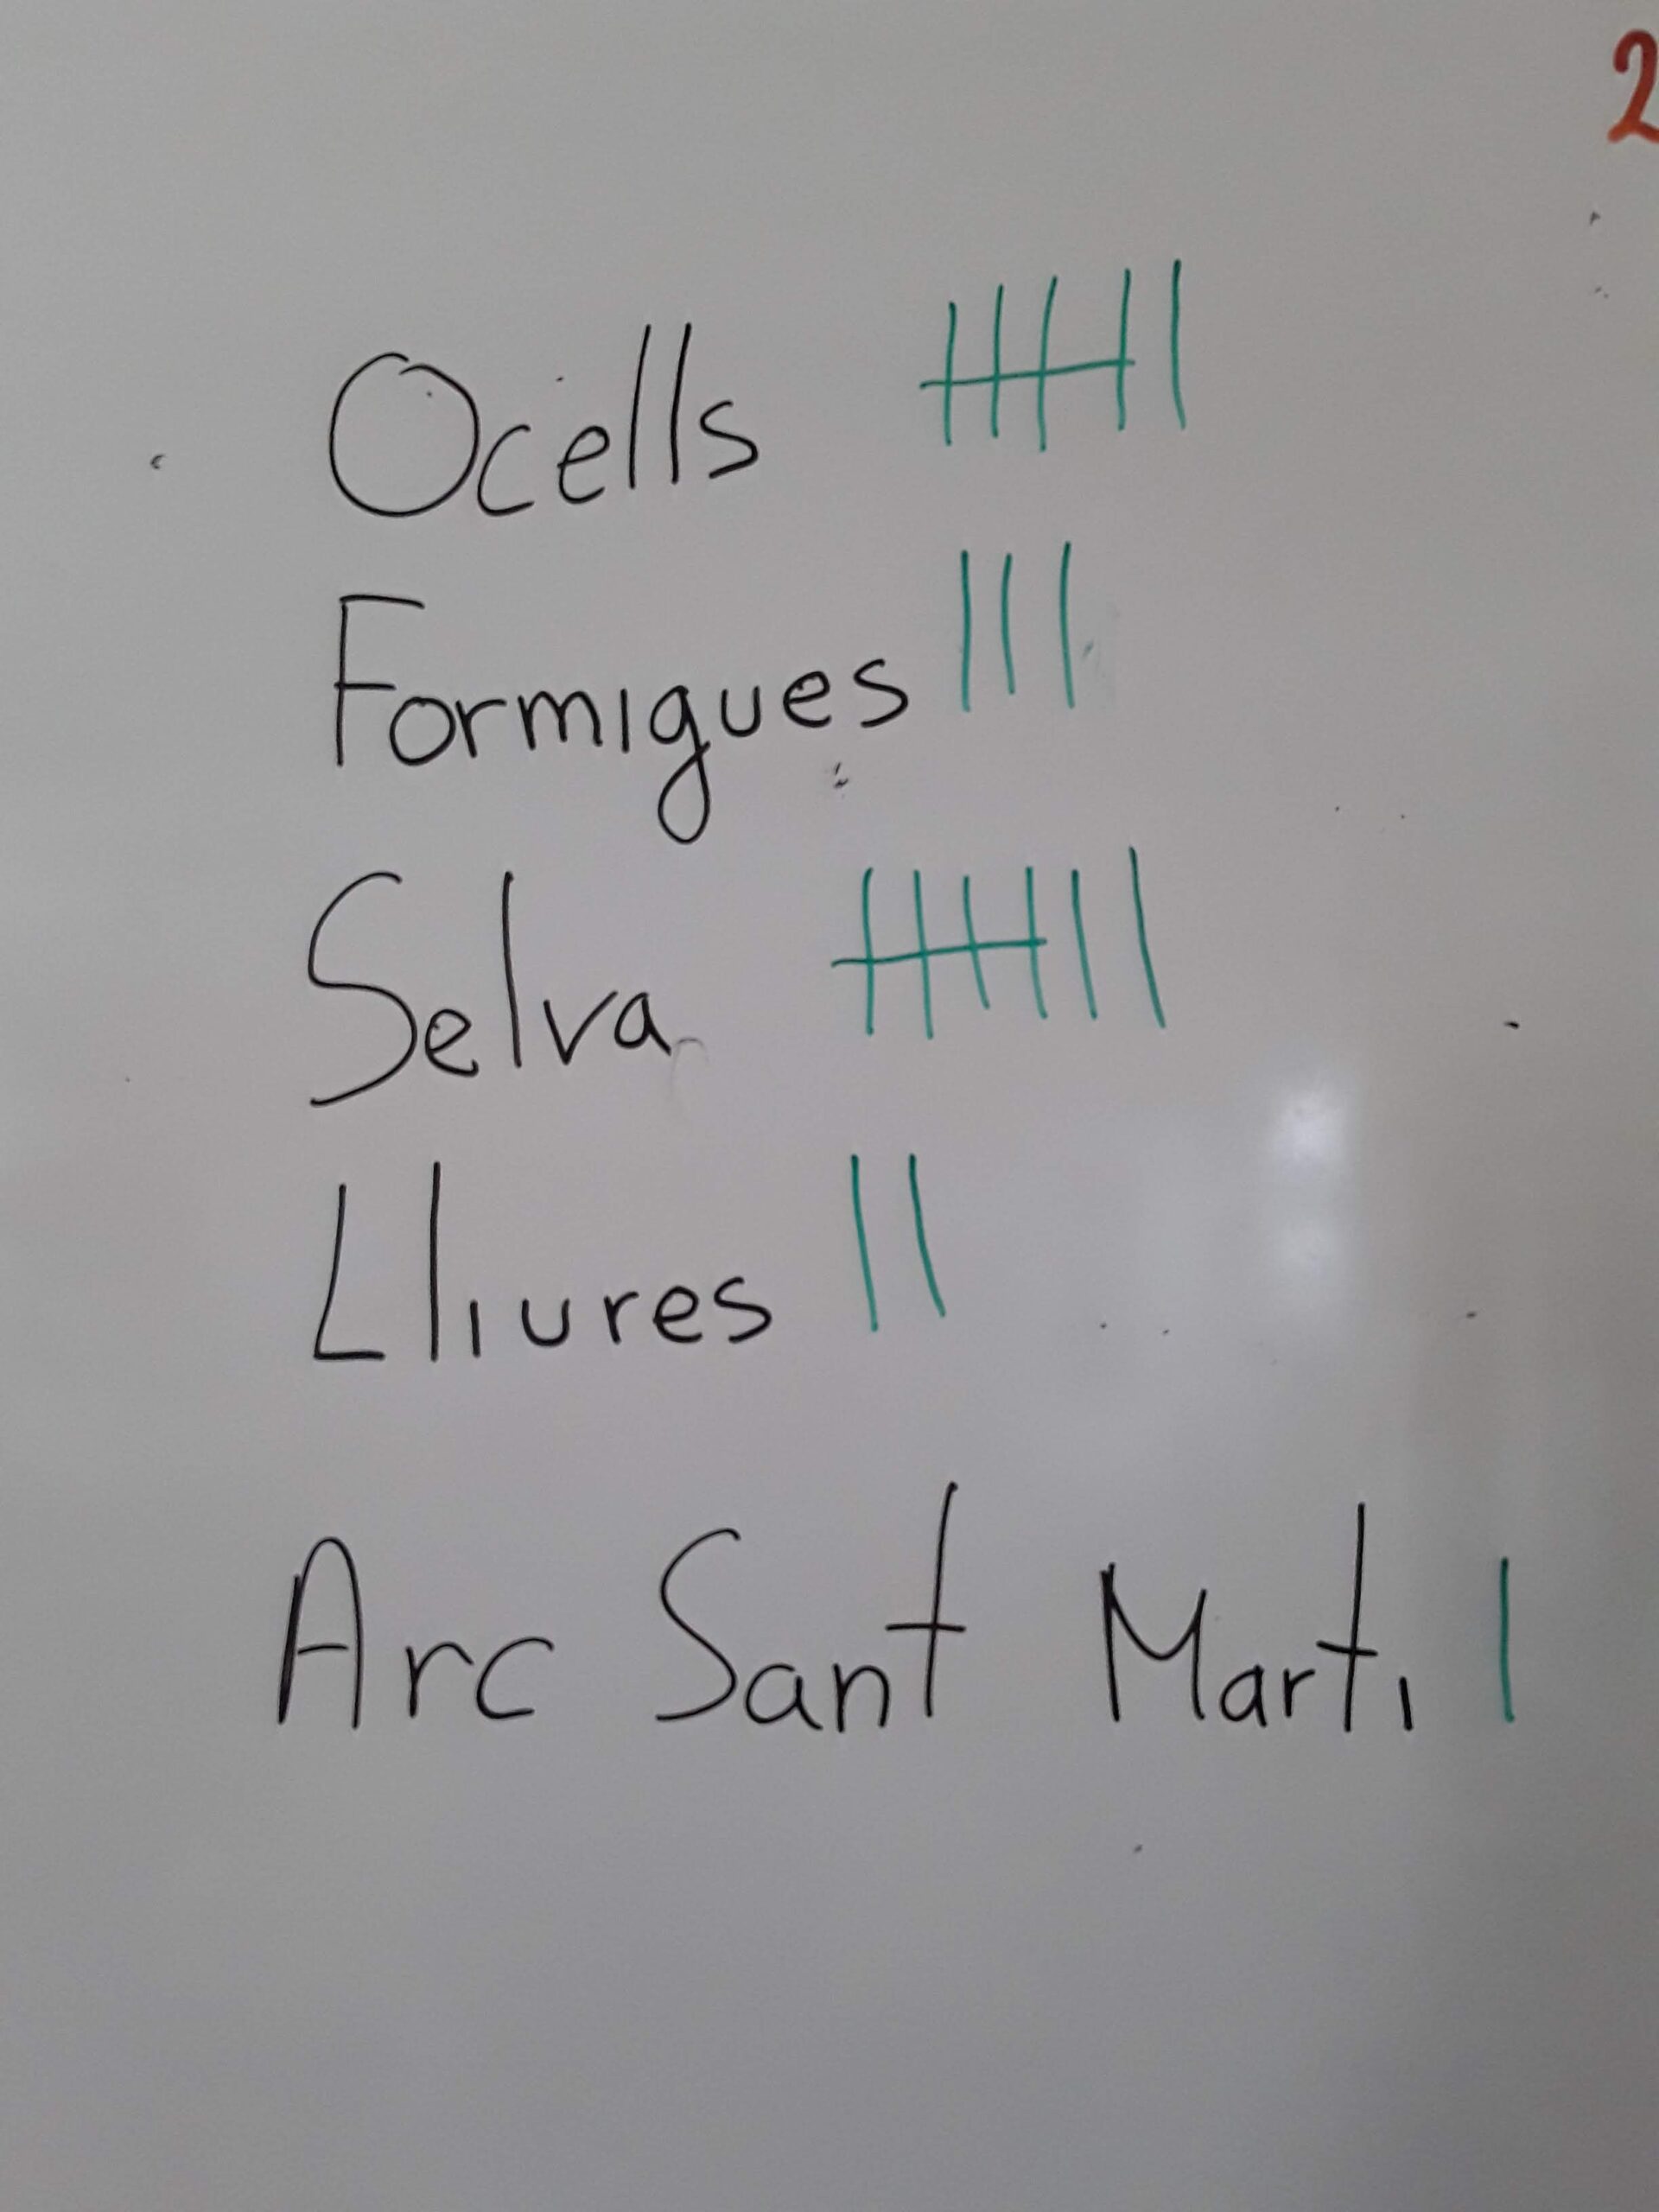 2
Ocells
Formigues
Selva
Lliures
Arc Sant Marti